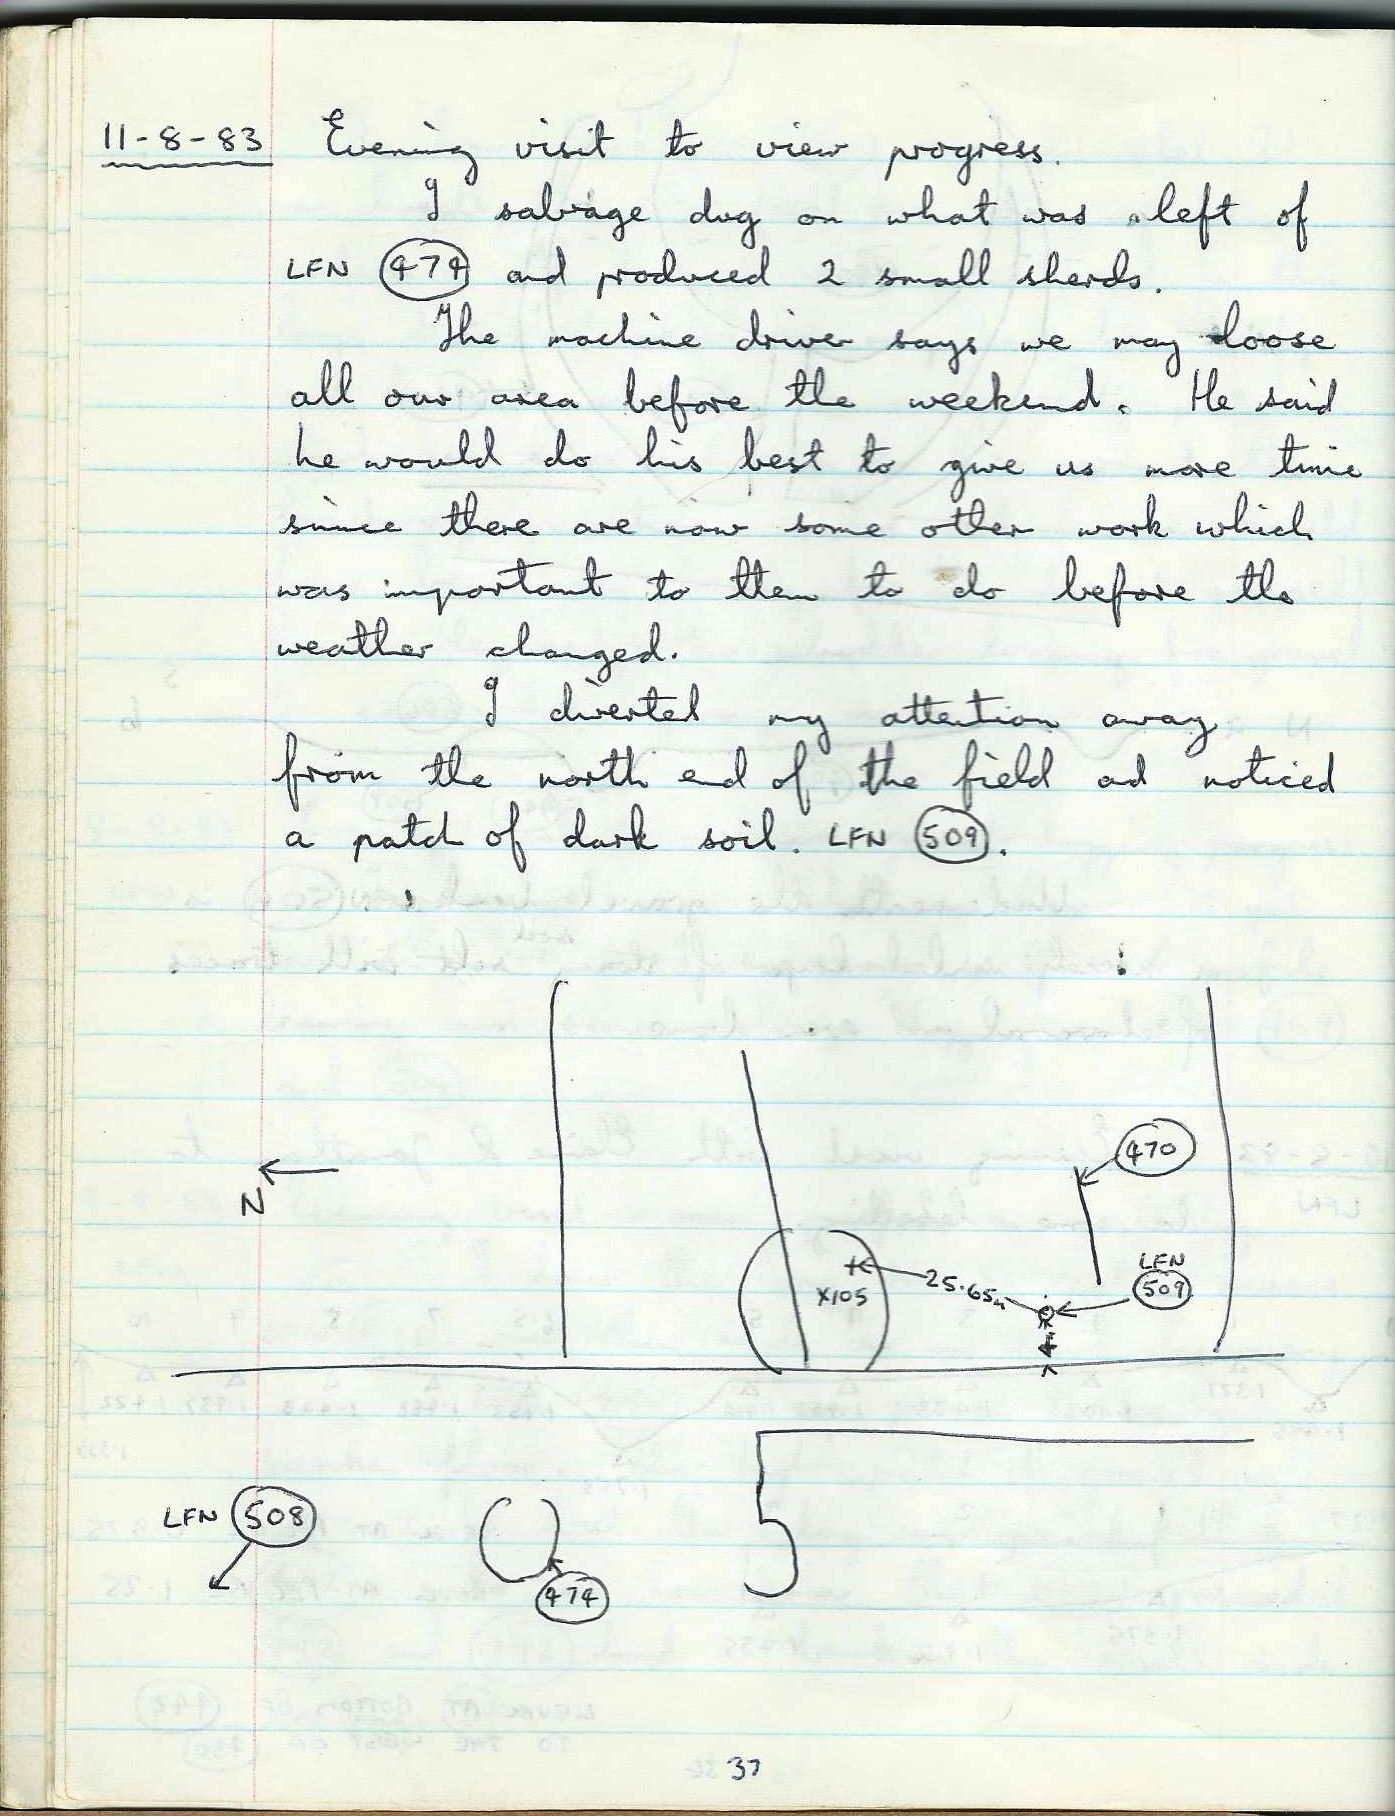 11-8-83 Evening visit to view progress.
I salvage dug on what was left of
LFN 474 and produced 2 small sherds.
The machine driver says we may loose
all our area before the weekend. He said
he would do his best to give us more time
since there are now some other work which
was important to them to do before the
weather changed.
I diverted my attention away
from the north end of the field ad noticed
a patch of dark soil. LFN 509.
470
N
LFN
509
25.65m
X105
LFN 508
474
37